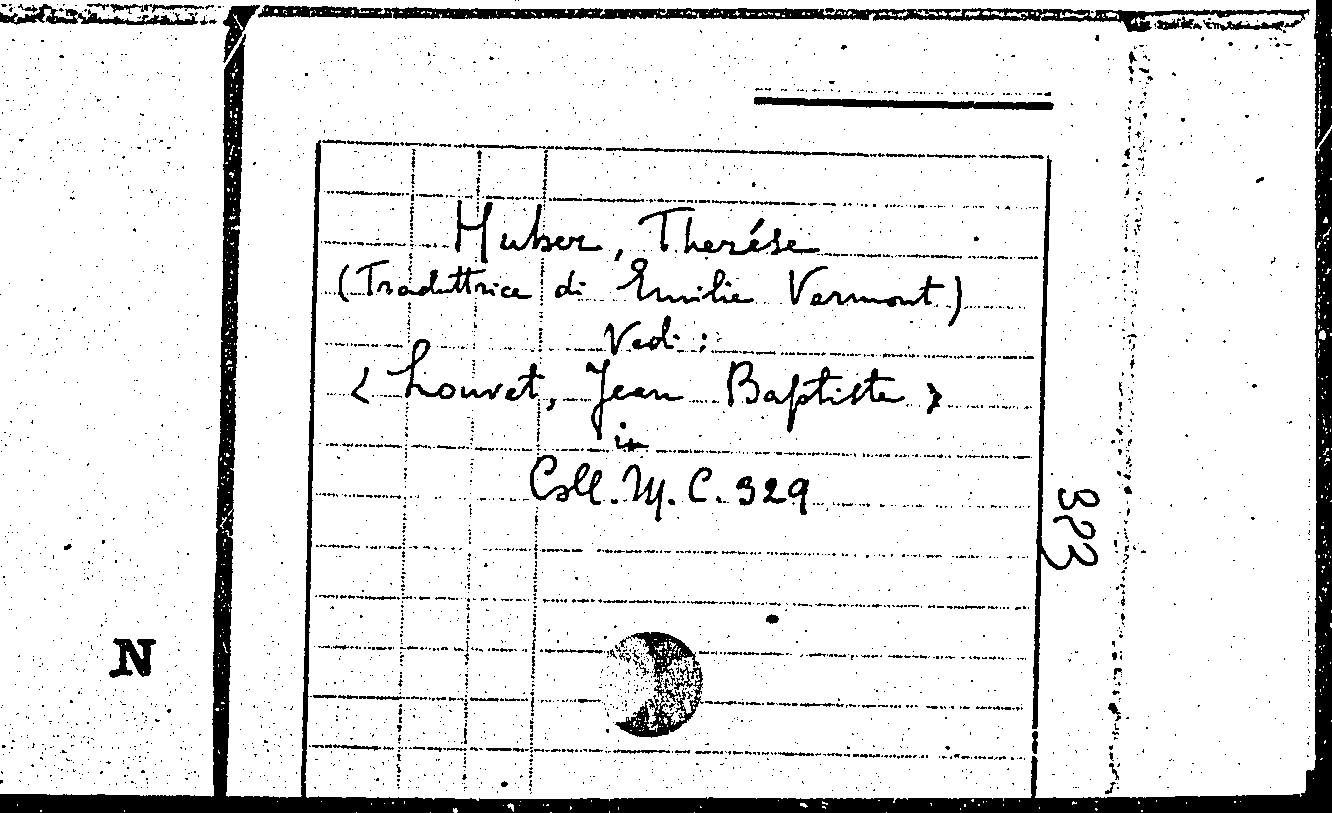 Huber, Therése
(Traduttrice di Emilie Varmont)
Vedi:
< Louvet, Jean Baptiste >
in
Coll. M. C. 329
323
N